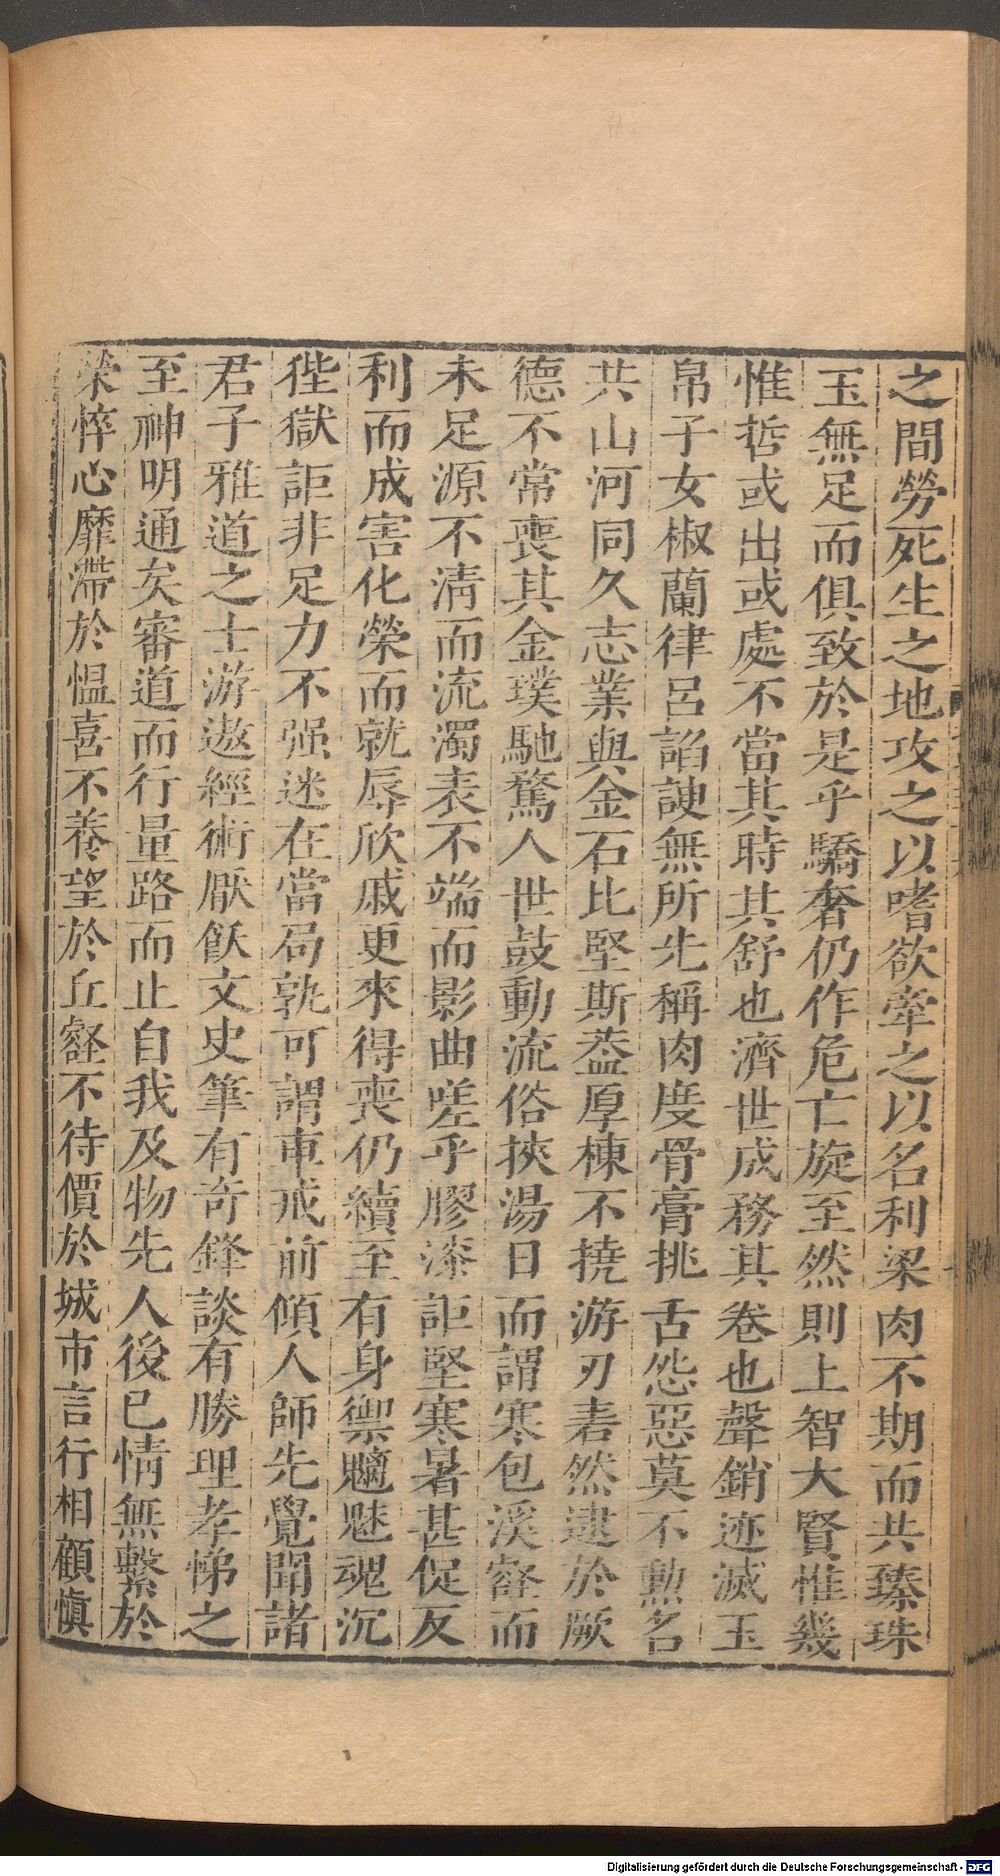 之間勞死生之地攻之以嗜欲牽之以名利梁肉不期而共臻珠
玉無足而俱致於是乎驕奢仍作危亡旋至然則上智大賢惟幾
惟哲或出或處不當其時其舒也濟世成務其卷也聲銷迹滅玉
帛子女椒蘭律呂諂諛無所先稱肉度骨膏挑舌怨惡莫不勲名
共山河同久志業與金石比堅斯葢厚棟不撓游刃砉然逮於厥
德不常喪其金璞馳騖人世鼓動流俗挾湯日而謂寒包溪壑而
未足源不清而流濁表不端而影曲嗟乎膠漆詎堅寒暑甚促反
利而成害化榮而就辱欣戚更來得喪仍續至有身禦魑魅魂沉
狴獄詎非足力不强迷在當局孰可謂車戒前傾人師先覺聞諸
君子雅道之士游遨經術厭飫文史筆有奇鋒談有勝理孝悌之
至神明通矣審道而行量路而止自我及物先人後已情無繫於
榮悴心靡滯於愠喜不養望於丘壑不待價於城市言行相顧愼
Digitalisierung gefördert durch die Deutsche Forschungsgemeinschaft - DFG